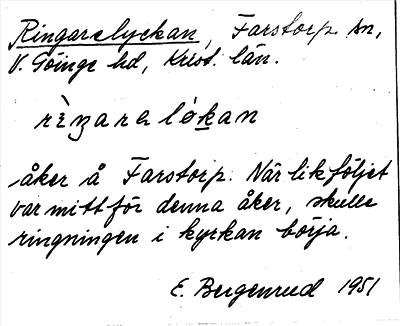 Ringarelyckan, Farstorp sn,
V. Göinge hd, Krist. län.
rìŋarɐ lókan
åker å Farstorp. När likföljet
var mitt för denna åker, skulle
ringningen i kyrkan börja.
E. Bergenrud 1951